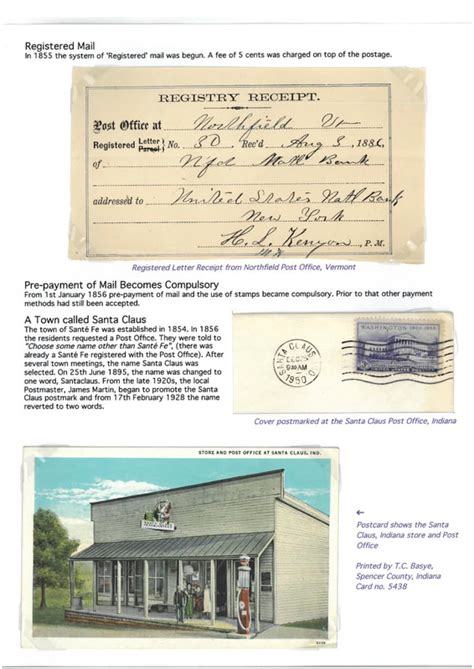 Registered Mail
In 1855 the system of 'Registered' mail was begun. A fee of 5 cents was charged on top of the postage.
REGISTRY RECEIPT.
Post Office at Northfield Vt
Registered Letter Parcel No. 30 Rec'd Aug 3, 1886,
of Nfd Natl Bank
addressed to United States Natl Bank
New York
H. L. Kenyon, P. M.
Registered Letter Receipt from Northfield Post Office, Vermont
Pre-payment of Mail Becomes Compulsory
From 1st January 1856 pre-payment of mail and the use of stamps became compulsory. Prior to that other payment
methods had still been accepted.
A Town called Santa Claus
The town of Santé Fe was established in 1854. In 1856
the residents requested a Post Office. They were told to
"Choose some name other than Santé Fe", (there was
already a Santé Fe registered with the Post Office). After
several town meetings, the name Santa Claus was
selected. On 25th June 1895, the name was changed to
one word, Santaclaus. From the late 1920s, the local
Postmaster, James Martin, began to promote the Santa
Claus postmark and from 17th February 1928 the name
reverted to two words.
SANTA CLAUS
DEC
930 AM
1950
WASHINGTON
Cover postmarked at the Santa Claus Post Office, Indiana
STORE AND POST OFFICE AT SANTA CLAUS, IND.
←
Postcard shows the Santa
Claus, Indiana store and Post
Office
Printed by T.C. Basye,
Spencer County, Indiana
Card no. 5438